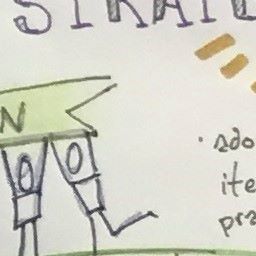 STRAT
N
· ado
ite
pra